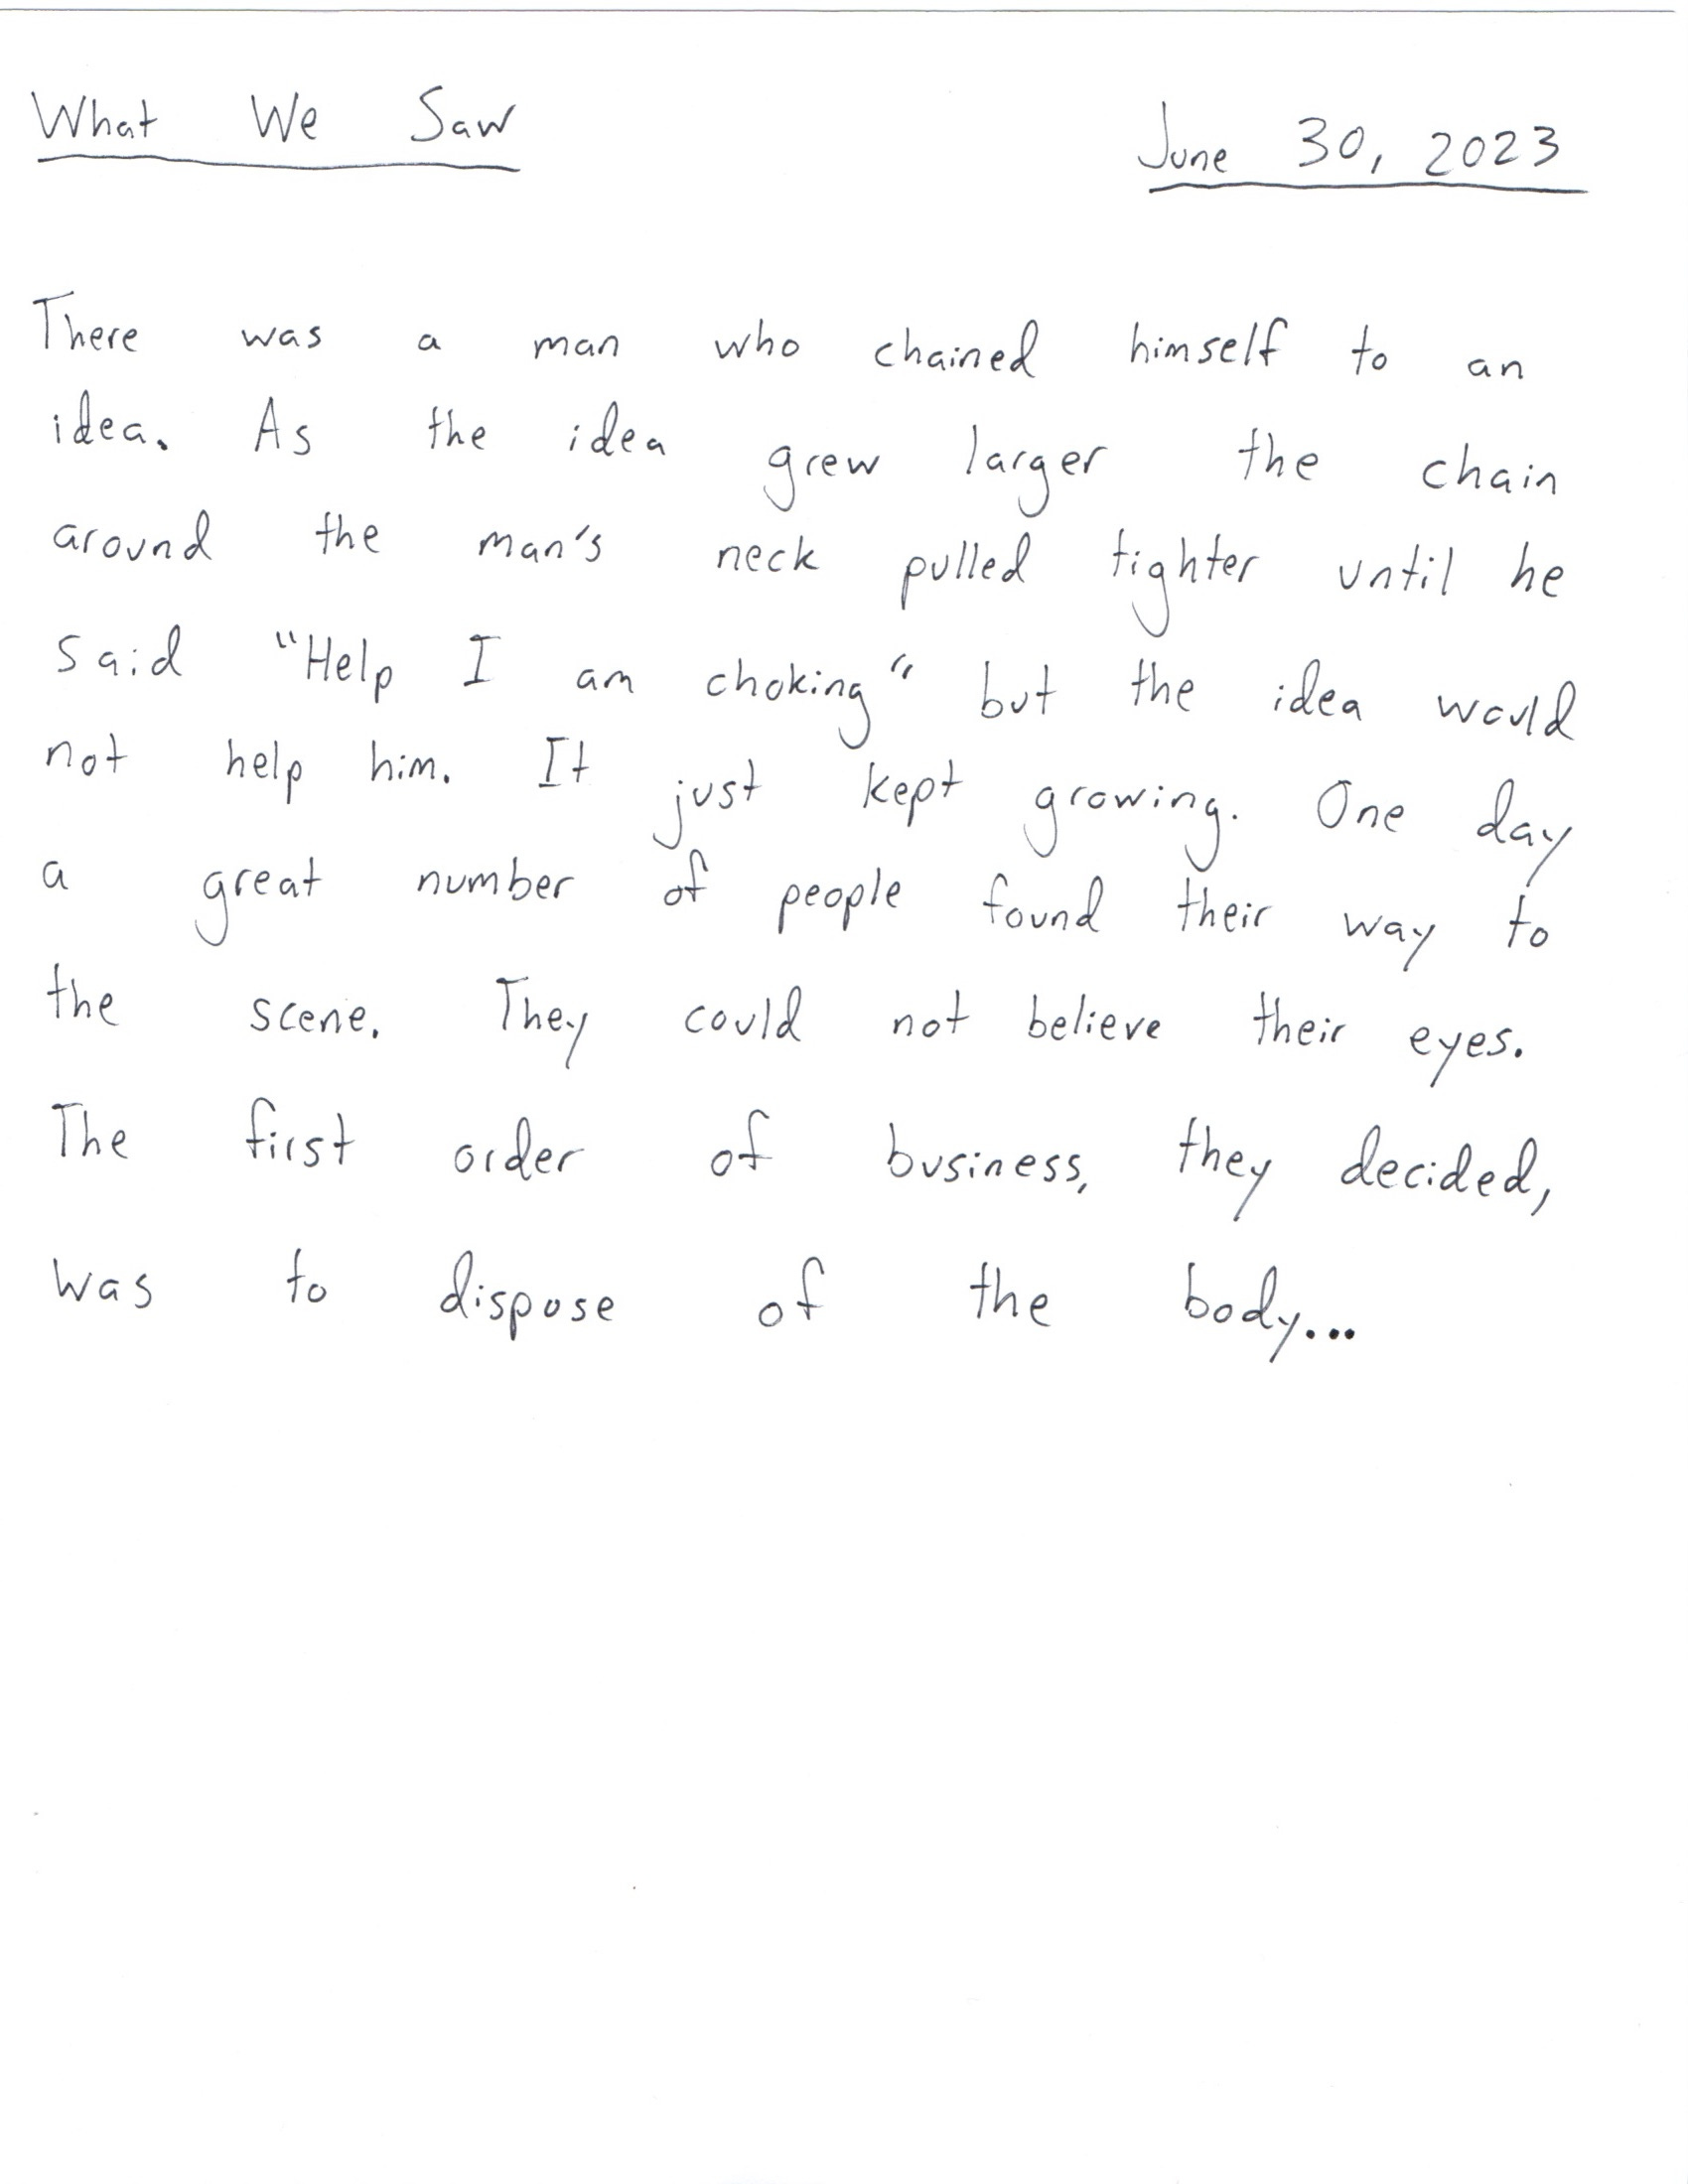 What We Saw June 30, 2023
There was a man who chained himself to an
idea. As the idea grew larger the chain
around the man's neck pulled tighter until he
said "Help I am choking" but the idea would
not help him. It just kept growing. One day
a great number of people found their way to
the scene. They could not believe their eyes.
The first order of business, they decided,
was to dispose of the body...